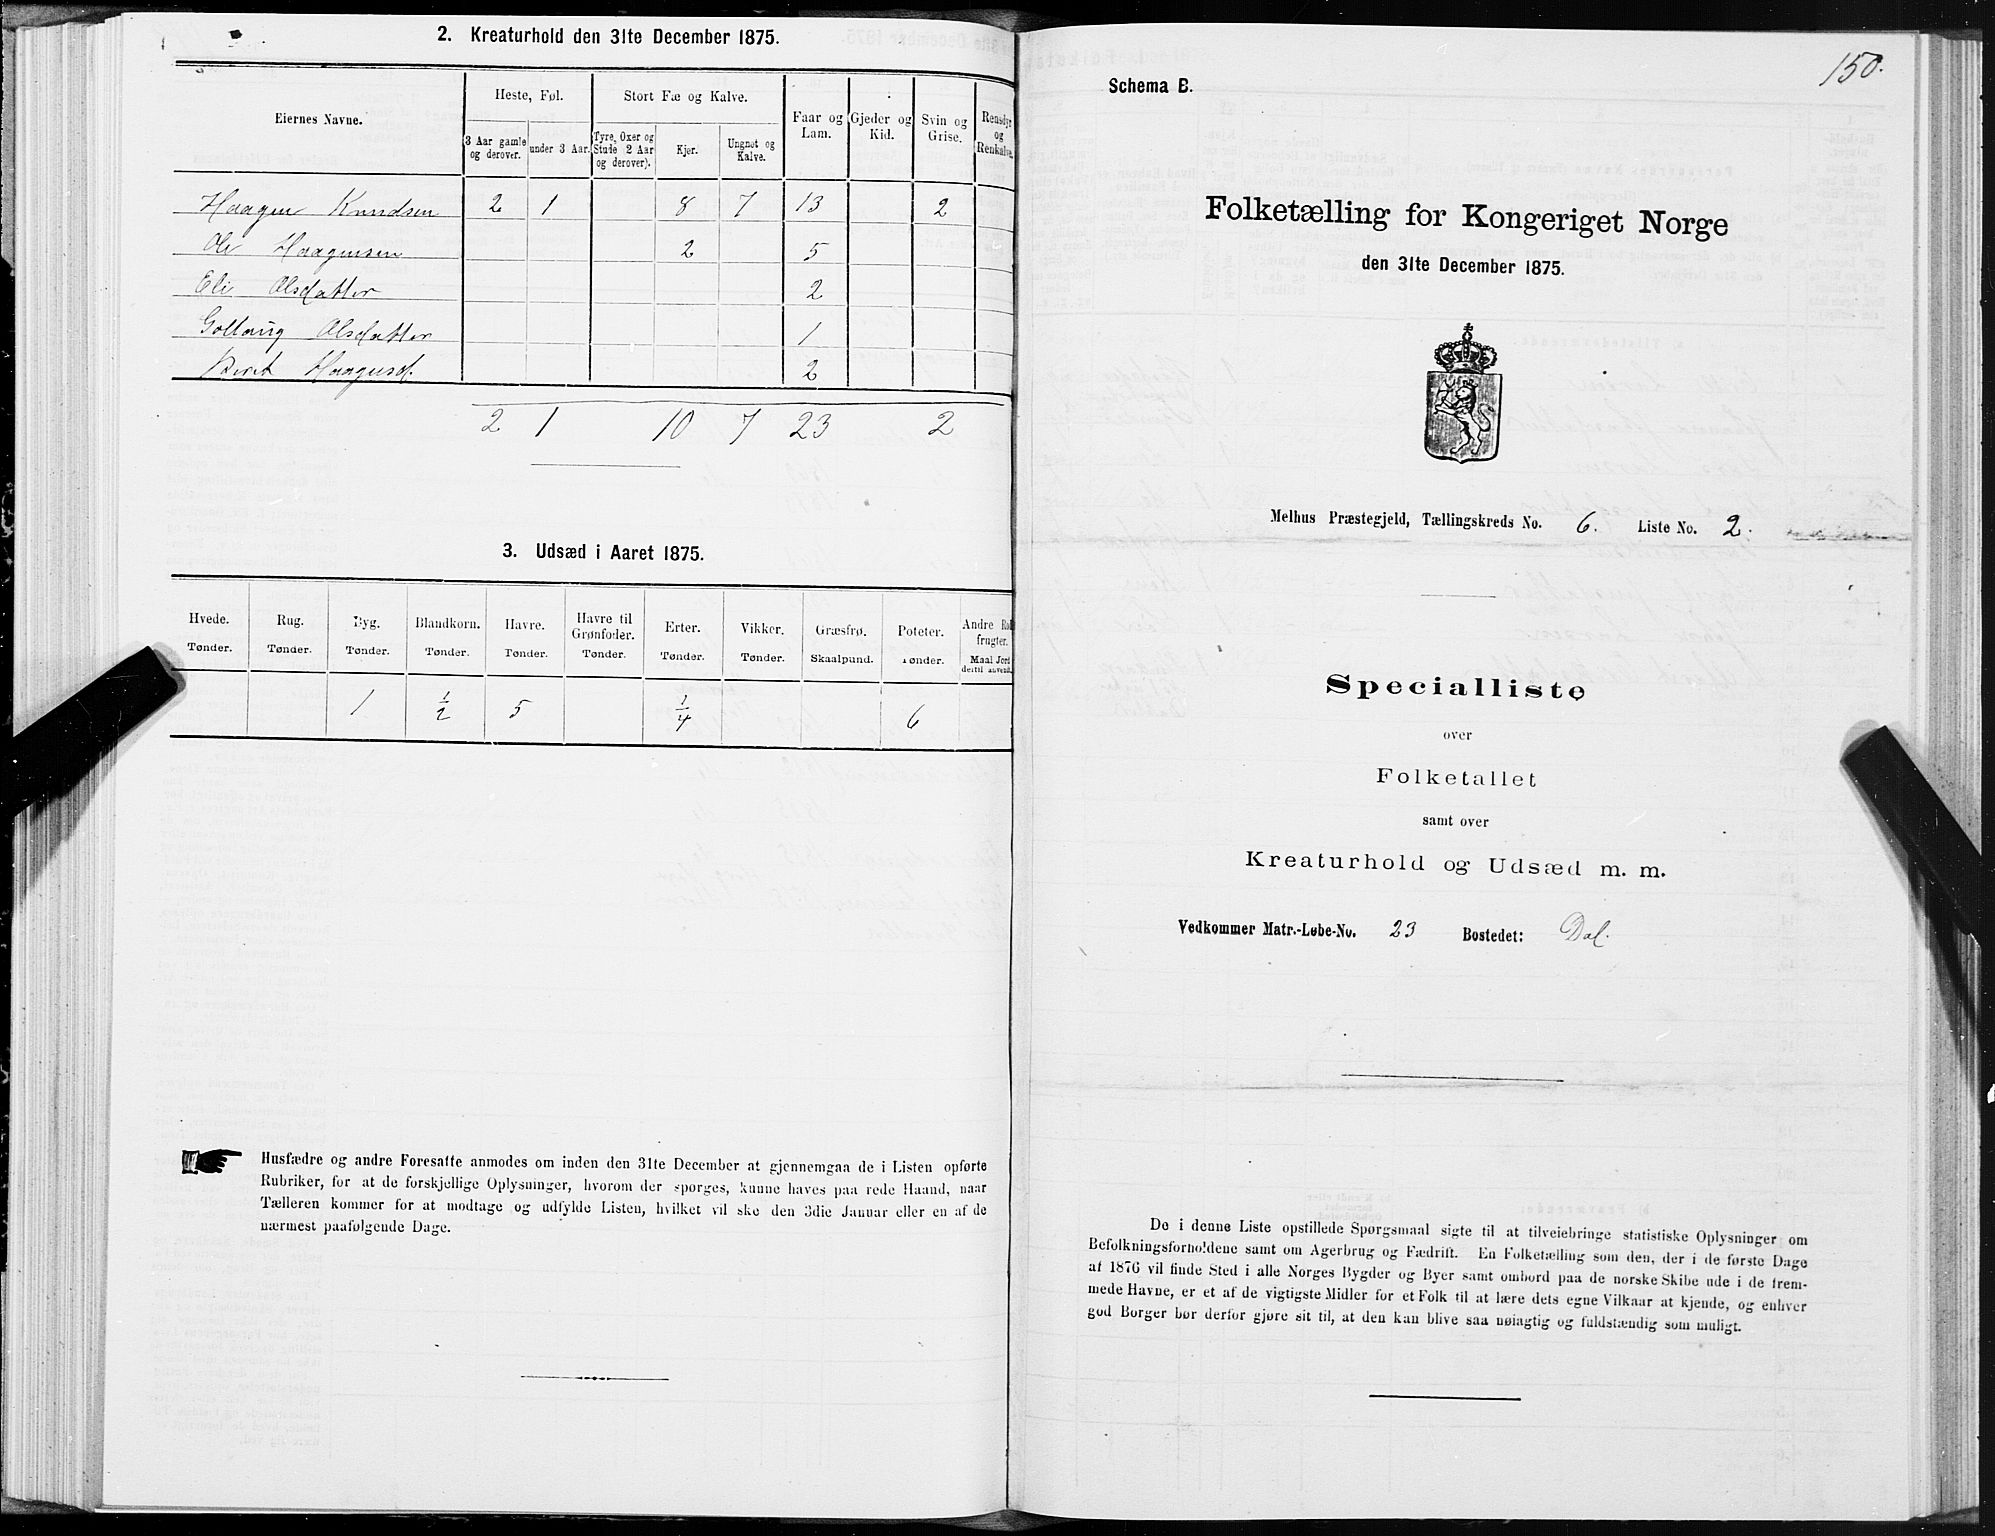 2. Kreaturhold den 31te December 1875.
Eiernes Navne.
Heste, Føl.
Stort Fæ og Kalve.
Faar og Lam.
Gjeder og Kid.
Svin og Grise.
Rensdyr og Renkalve.
3 Aar gamle og derover.
under 3 Aar.
Tyre, Oxer og Stude 2 Aar og derover).
Kjør.
Ungnøt og Kalve.
Haagen Knudsen 2 1 8 7 13 2
Ole Haagensen 2 5
Eli Olsdatter 2
Gollaug Olsdatter 1
Beret Haagensd. 2
2 1 10 7 23 2
3. Udsæd i Aaret 1875.
Hvede. Rug. Byg. Blandkorn. Havre. Havre til Grønfoder. Erter. Vikker. Græsfrø. Poteter. Andre Rodfrugter.
Tønder. Tønder. Tønder. Tønder. Tønder. Tønder. Tønder. Tønder. Skaalpund. Tønder. Maal Jord dertil anvendt.
1 1/2 5 1/4 6
Husfædre og andre Foresatte anmodes om inden den 31te December at gjennemgaa de i Listen opførte
Rubriker, for at de forskjellige Oplysninger, hvorom der spørges, kunne haves paa rede Haand, naar
Tælleren kommer for at modtage og udfylde Listen, hvilket vil ske den 3die Januar eller en af de
nærmest paafølgende Dage.
150.
Schema B.
Folketælling for Kongeriget Norge
den 31te December 1875.
Melhus Præstegjeld, Tællingskreds No. 6. Liste No. 2.
Specialliste
over
Folketallet
samt over
Kreaturhold og Udsæd m. m.
Vedkommer Matr.-Løbe-No. 23 Bostedet: Dal.
De i denne Liste opstillede Spørgsmaal sigte til at tilveiebringe statistiske Oplysninger om
Befolkningsforholdene samt om Agerbrug og Fædrift. En Folketælling som den, der i de første Dage
af 1876 vil finde Sted i alle Norges Bygder og Byer samt ombord paa de norske Skibe ude i de frem-
mede Havne, er et af de vigtigste Midler for et Folk til at lære dets egne Vilkaar at kjende, og enhver
god Borger bør derfor gjøre sit til, at den kan blive saa nøiagtig og fuldstændig som muligt.